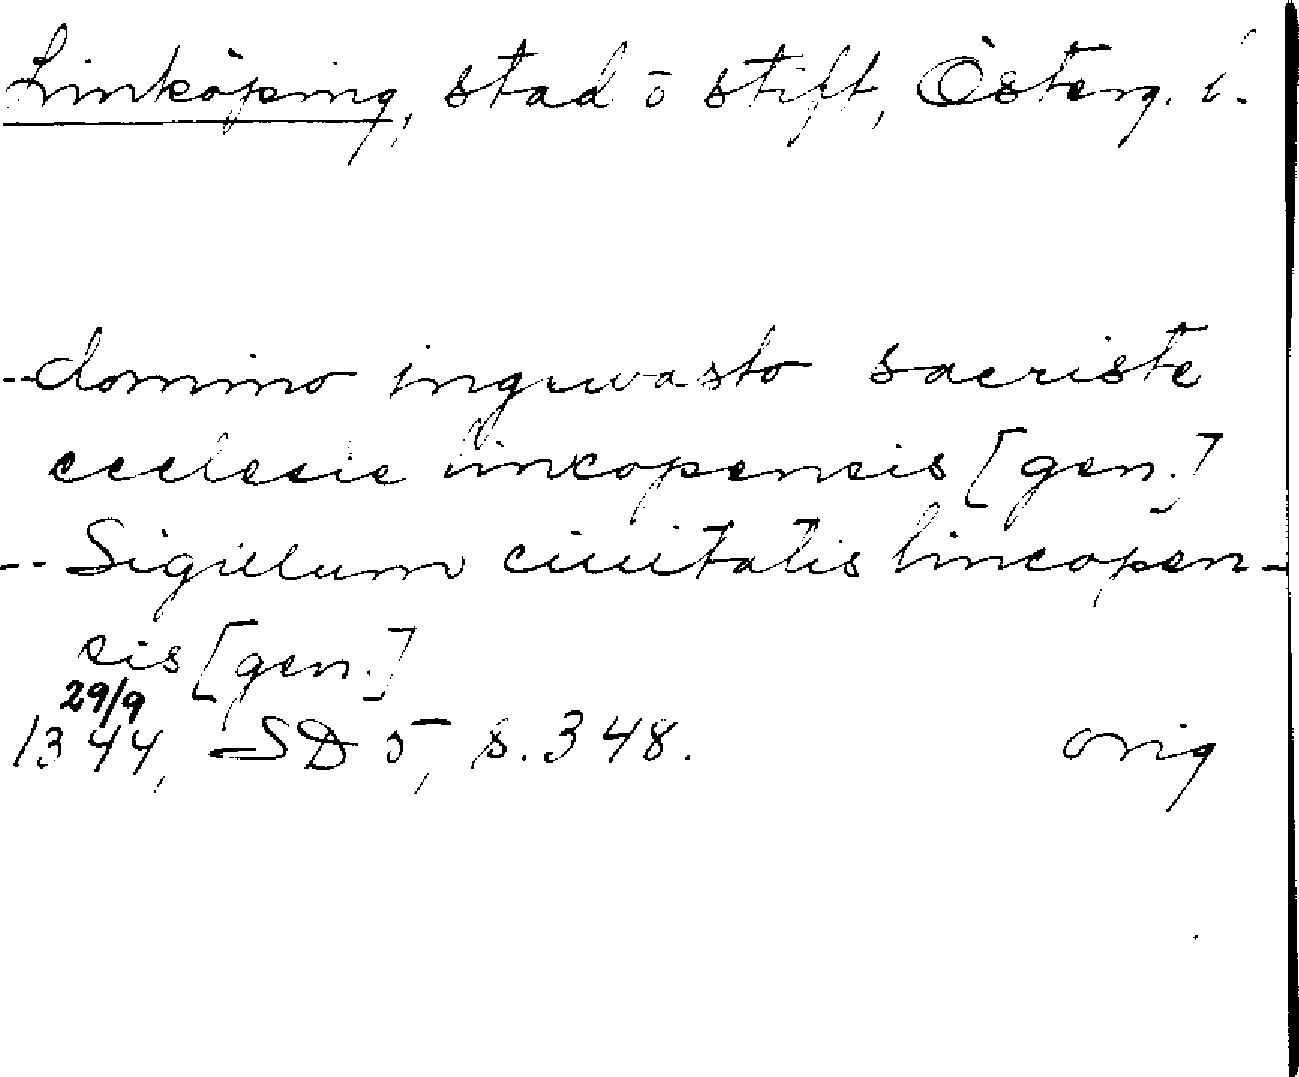 Linköping, stad o stift, Österg. l.
--domino inguuasto sacriste
ecclesie lincopencis [gen.]
-- Sigillum ciuitatis lincopen-
cis [gen.]
29/9
1344, SD 5, s. 348. orig